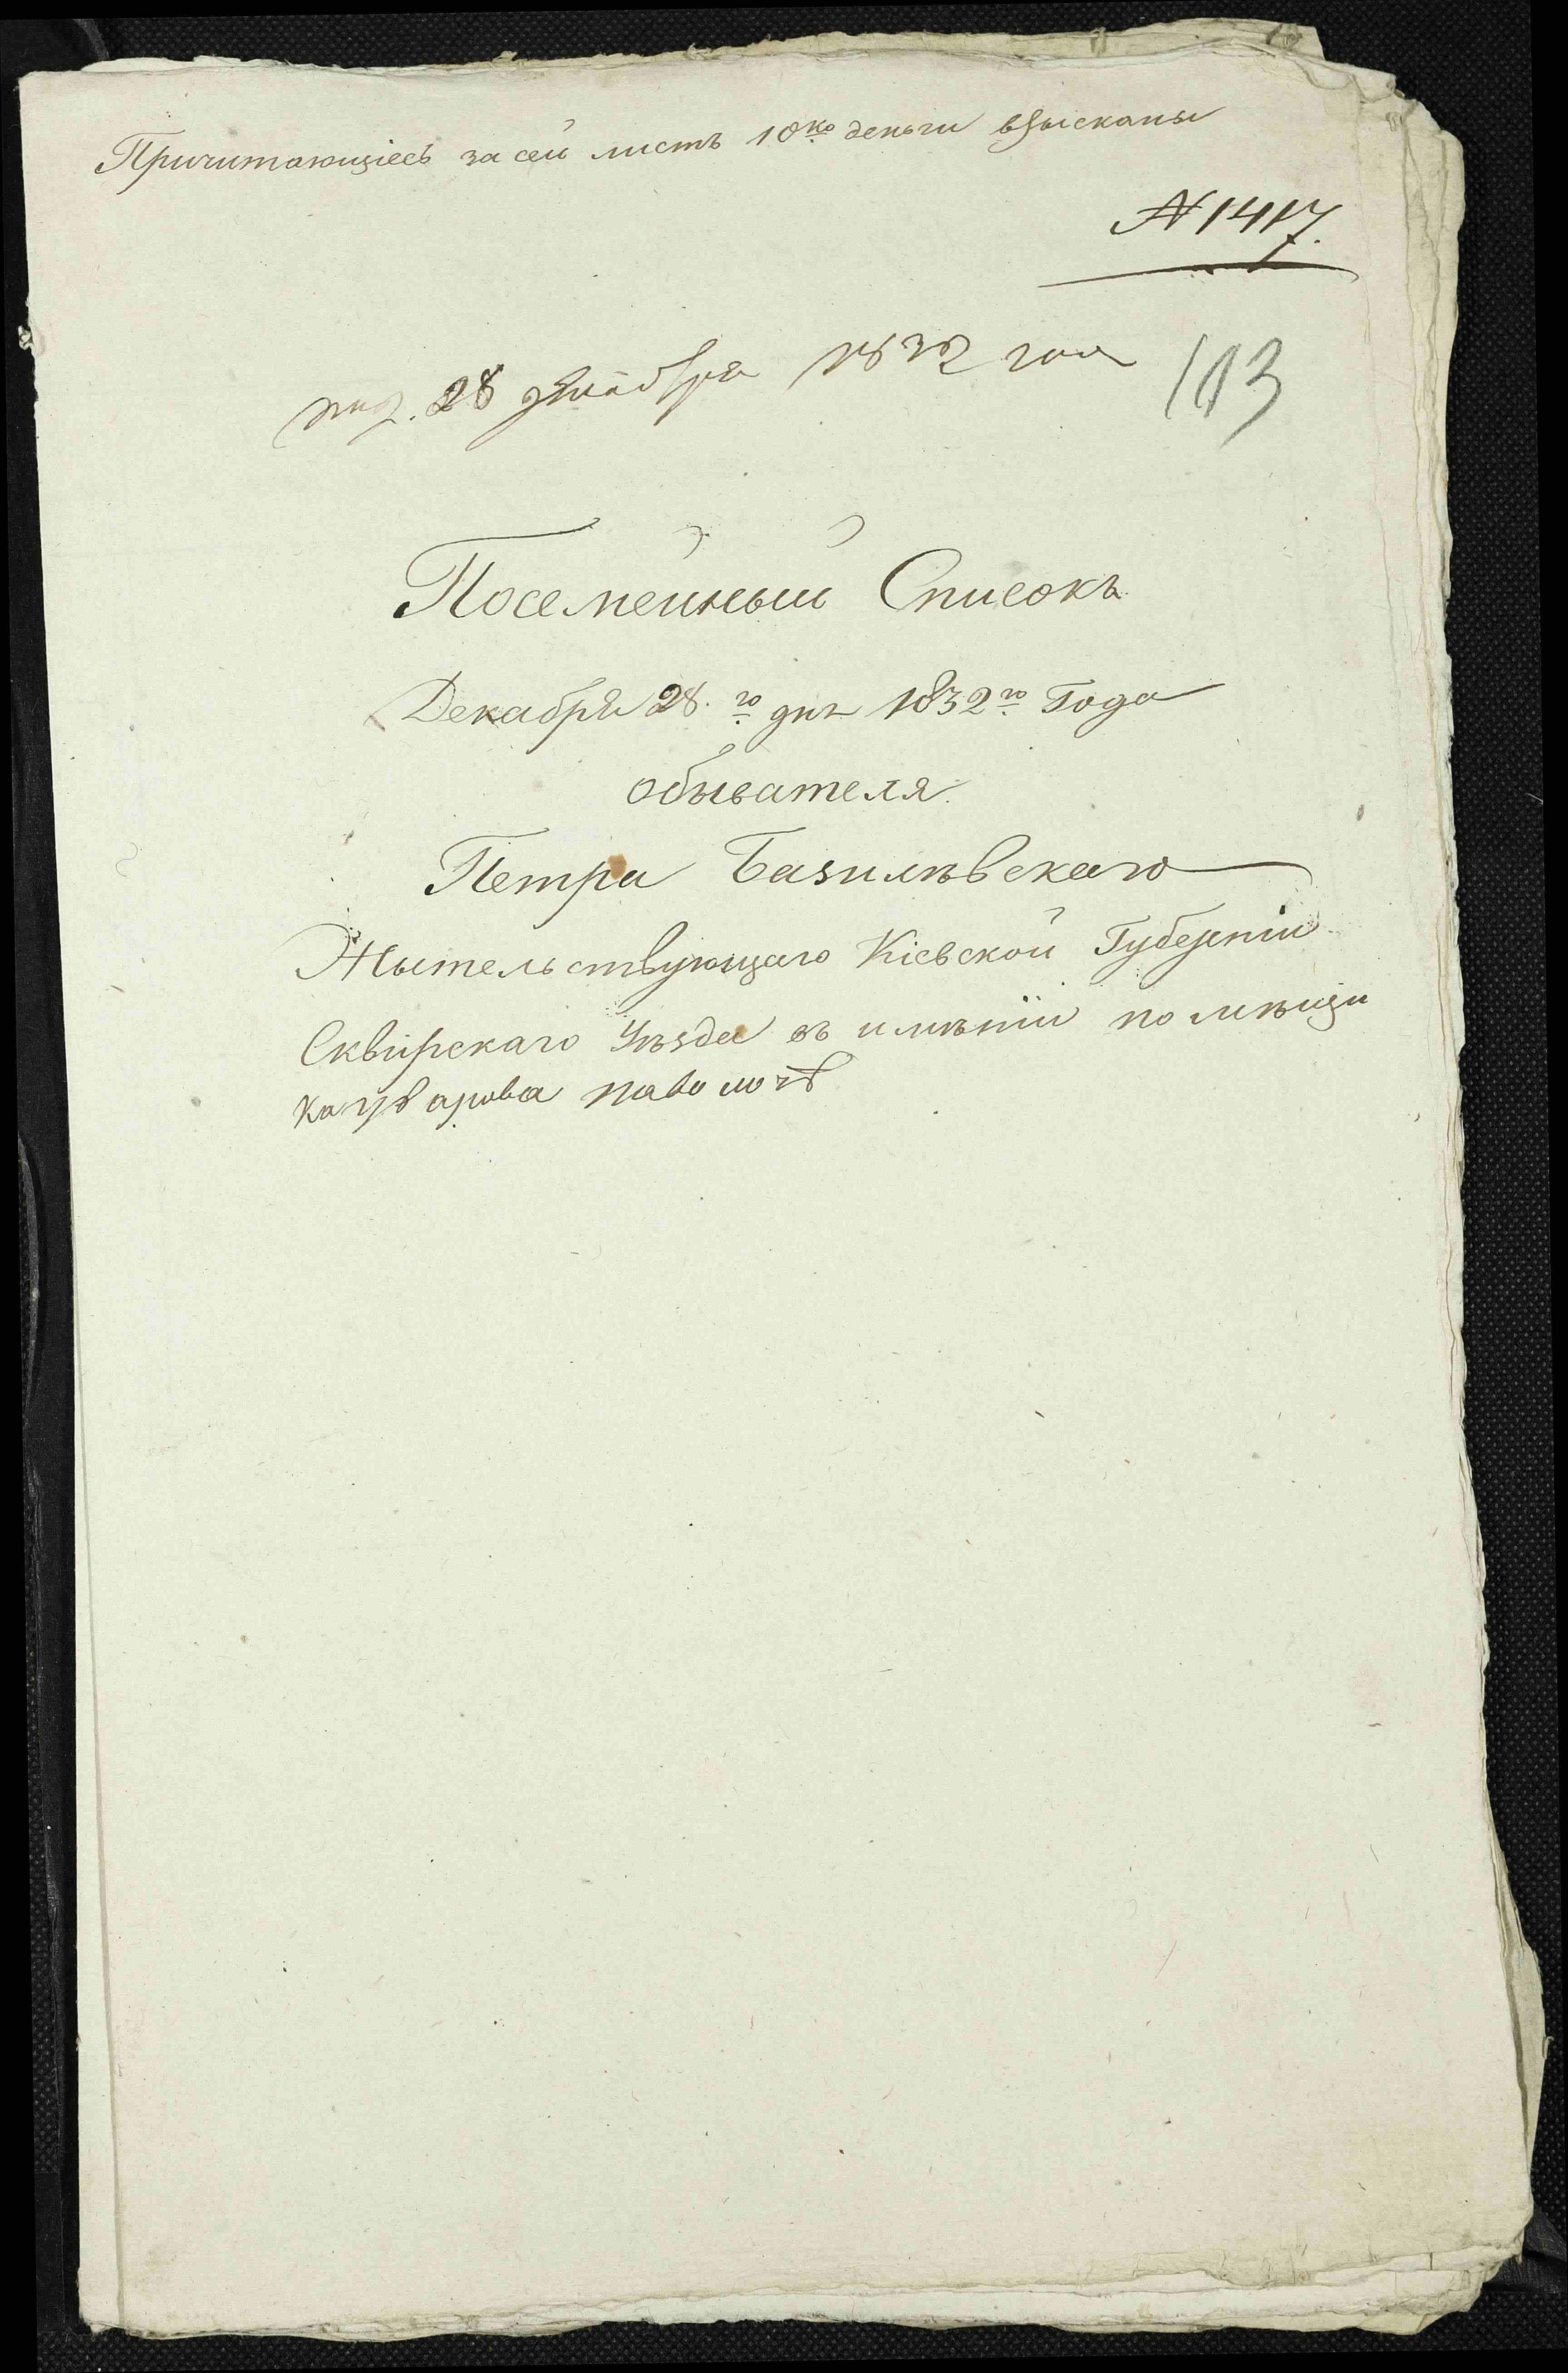 Причитающіесь за сей листъ 10 ко деньги взысканы
№ 1417.
под. 28 декабря 1832 года
113
Посемейный Списокъ
Декабря 28.го дня 1832го Года
обывателя.
Петра Базилѣвскаго
Жытельствующаго Кіевской Губерніи
Сквирскаго Уѣзда въ имѣніи помѣщи
ка Паволочѣ